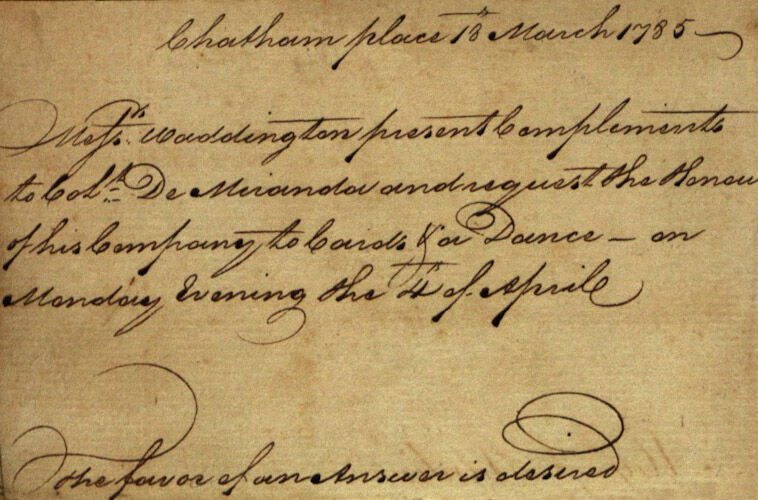 Chatham place 18th March 1785 —
Messrs. Waddington present Complements
to Coln. De Miranda and request the Honou
of his Company to Cards & a Dance — on
Monday Evening the 4th of April
the favor of an Answer is desired